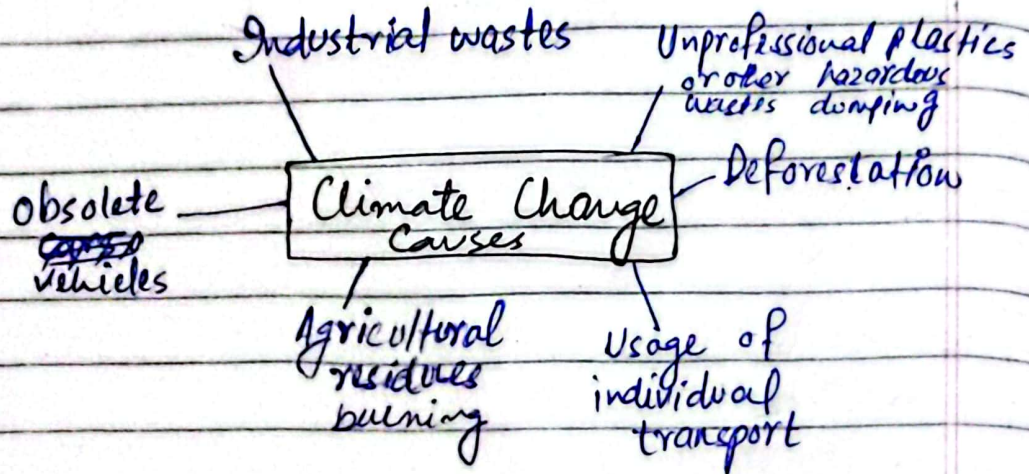 Industrial wastes
Unprofessional plastics
or other hazardous
wastes dumping
Deforestation
Climate Change
Causes
Obsolete
vehicles
Agricultural
residues
burning
Usage of
individual
transport